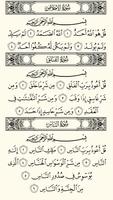 سُورَةُ الإِخْلَاصِ
بِسْمِ ٱللَّهِ ٱلرَّحْمَٰنِ ٱلرَّحِيمِ
قُلْ هُوَ ٱللَّهُ أَحَدٌ ١ ٱللَّهُ ٱلصَّمَدُ ٢
لَمْ يَلِدْ وَلَمْ يُولَدْ ٣ وَلَمْ يَكُن لَّهُۥ كُفُوًا أَحَدٌ ٤
سُورَةُ الفَلَقِ
بِسْمِ ٱللَّهِ ٱلرَّحْمَٰنِ ٱلرَّحِيمِ
قُلْ أَعُوذُ بِرَبِّ ٱلْفَلَقِ ١ مِن شَرِّ مَا خَلَقَ ٢
وَمِن شَرِّ غَاسِقٍ إِذَا وَقَبَ ٣ وَمِن شَرِّ
ٱلنَّفَّٰثَٰتِ فِى ٱلْعُقَدِ ٤ وَمِن شَرِّ حَاسِدٍ إِذَا حَسَدَ ٥
سُورَةُ النَّاسِ
بِسْمِ ٱللَّهِ ٱلرَّحْمَٰنِ ٱلرَّحِيمِ
قُلْ أَعُوذُ بِرَبِّ ٱلنَّاسِ ١ مَلِكِ ٱلنَّاسِ ٢
إِلَٰهِ ٱلنَّاسِ ٣ مِن شَرِّ ٱلْوَسْوَاسِ ٱلْخَنَّاسِ ٤ ٱلَّذِى
يُوَسْوِسُ فِى صُدُورِ ٱلنَّاسِ ٥
مِنَ ٱلْجِنَّةِ وَٱلنَّاسِ ٦